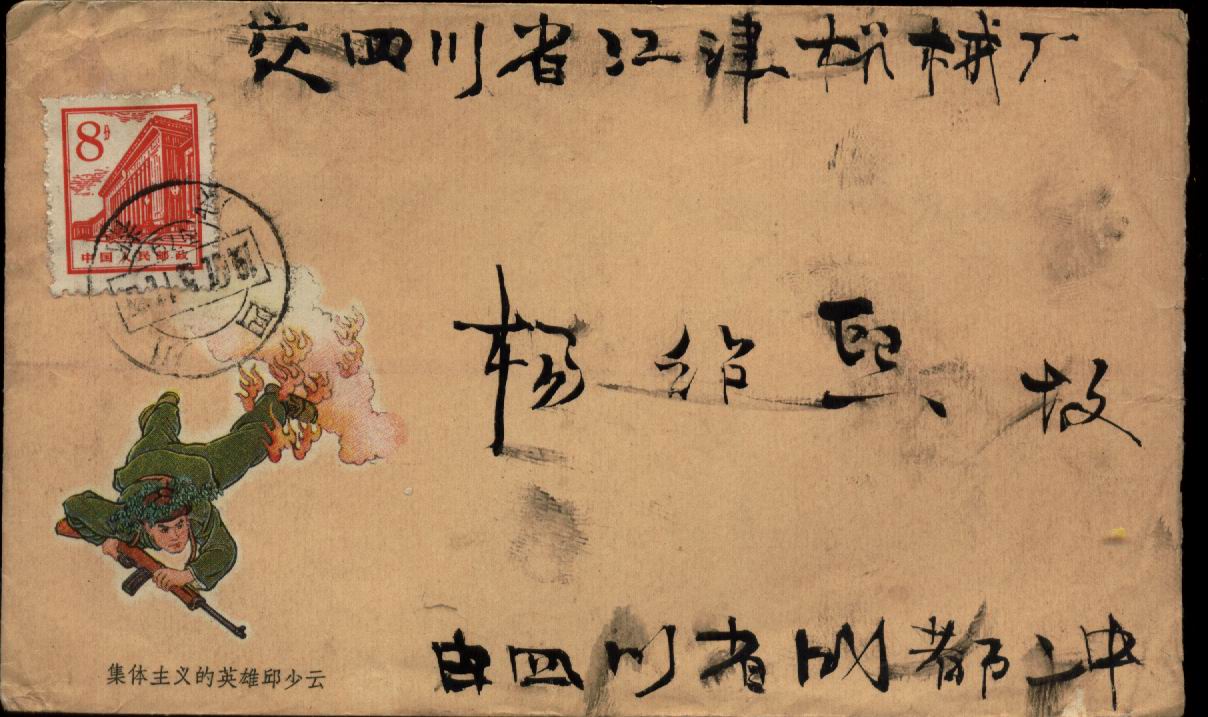 交四川省江津机械厂
8分
中国人民邮政
四川
杨绍熙 收
由四川省成都二中
集体主义的英雄邱少云